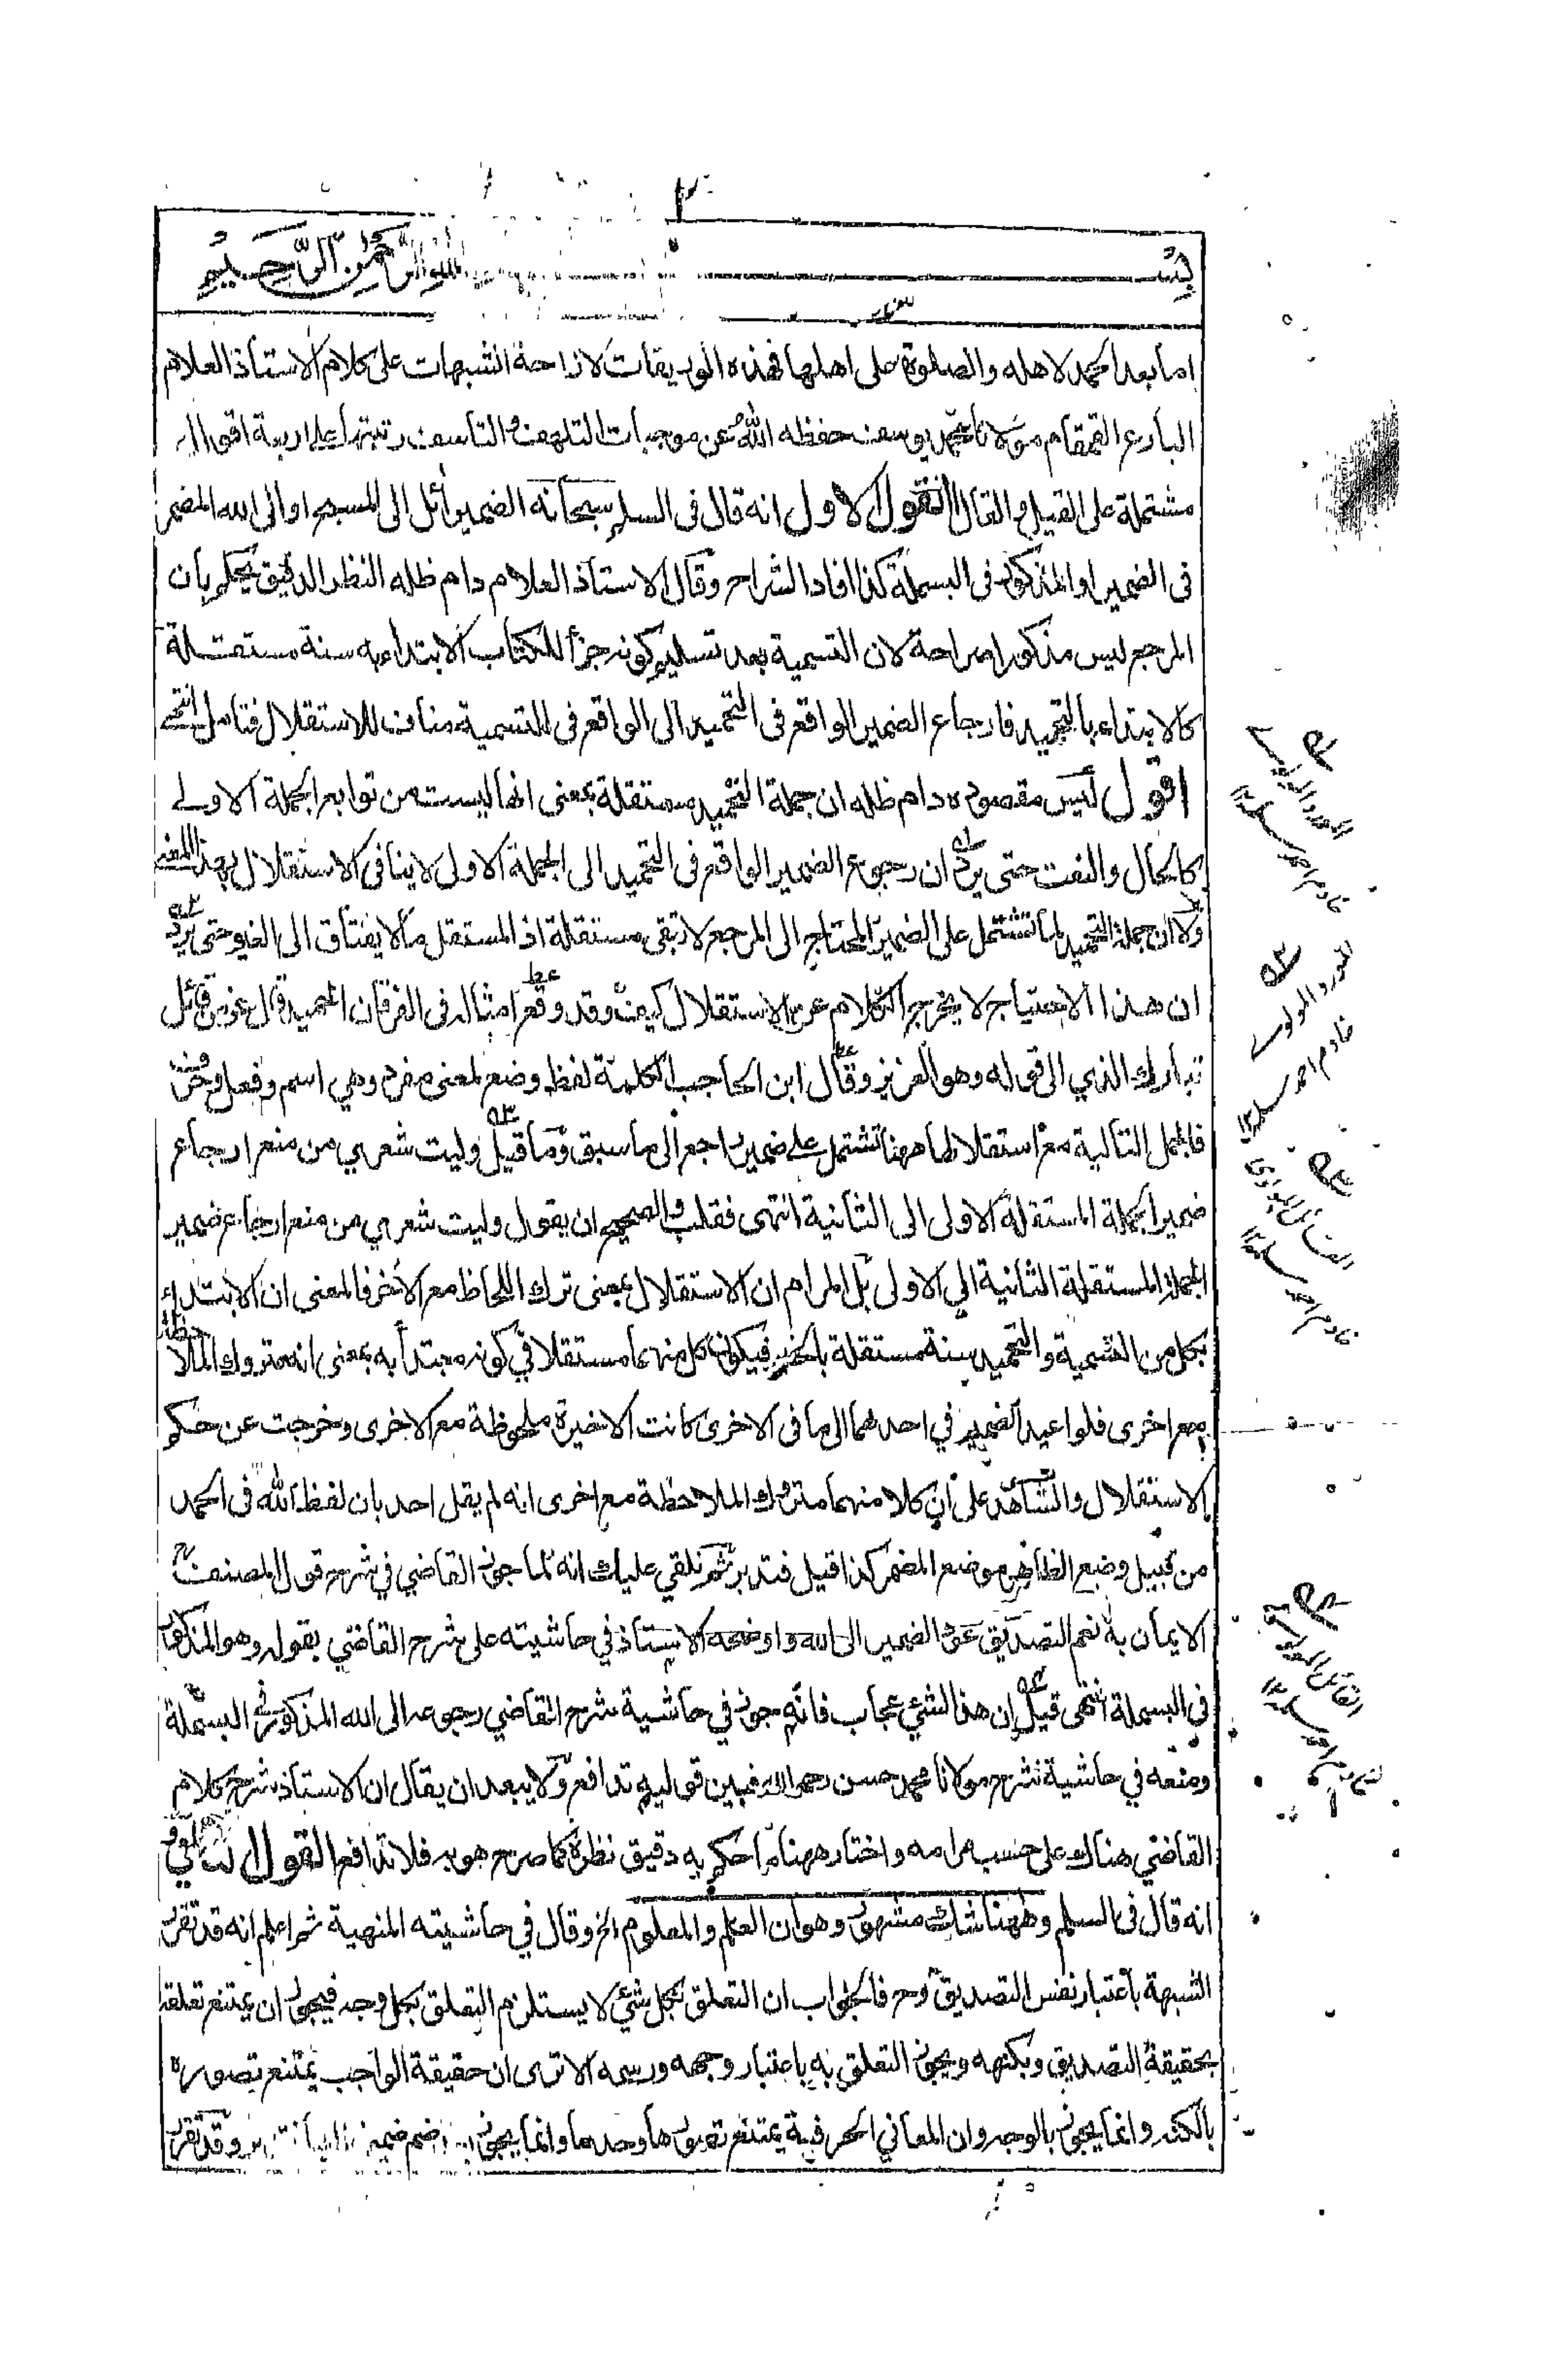 ٢
بسم الله الرحمن الرحيم
اما بعد الحمد لاهله والصلوة على اهلها فهذه الوريقات لازاحة الشبهات على كلام الاستاذ العلام
البارع القمقام مولانا محمد يوسف حفظه الله عن موجبات التلهف والتأسف رتبتها على اربعة اقوال
مشتملة على القيل والقال القول الاول انه قال فى السلم سبحانه الضمير ائل الى المسبح او الى الله المضمر
فى الضمير او المذكور فى البسملة كذا افاد الشراح وقال الاستاذ العلام دام ظله النظر الدقيق يحكم بان
المرجع ليس مذكورا صراحة لان التسمية بعد تسليم كونه جزأ للكتاب الابتداء به سنة مستقلة
كالابتداء بالتحميد فارجاع الضمير الواقع فى التحميد الى الواقع فى التسمية مناف للاستقلال فتامل انتهى
اقول ليس مقصوده دام ظله ان جملة التحميد مستقلة بمعنى انها ليست من توابع الجملة الاولى
كالحال والنعت حتى يرد ان رجوع الضمير الواقع فى التحميد الى الجملة الاولى لا ينافى الاستقلال بهذا المعنى
ولا ان جملة التحميد لما تشتمل على الضمير المحتاج الى المرجع لا تبقى مستقلة اذ المستقل ما لا يفتاق الى الغير حتى يرد
ان هذا الاحتياج لا يخرج الكلام عن الاستقلال كيف وقد وقع امثاله فى الفرقان الحميد قال عز من قائل
تبارك الذي الى قوله وهو العزيز وقال ابن الحاجب الكلمة لفظ وضع لمعنى مفرد وهي اسم وفعل وحرف
فالجمل التالية مع استقلالها ههنا تشتمل على ضمير راجع الى ما سبق وما قيل وليت شعري من منع ارجاع
ضمير الجملة المستقلة الاولى الى الثانية انتهى فقلب والصحيح ان يقول وليت شعري من منع ارجاع ضمير
الجملة المستقلة الثانية الي الاولى بل المرام ان الاستقلال بمعنى ترك اللحاظ مع الاخر فالمعنى ان الابتداء
بكل من التسمية والتحميد سنة مستقلة بالخبر فيكون كل منهما مستقلا في كونه مبتدأ به بمعنى انه متروك الملاحظة
مع اخرى فلو اعيد الضمير في احدهما الى ما فى الاخرى كانت الاخيرة ملحوظة مع الاخرى وخرجت عن حكم
الاستقلال والشاهد على ان كلا منهما متروك الملاحظة مع اخرى انه لم يقل احد بان لفظ الله فى الحمد
من قبيل وضع الظاهر موضع المضمر كذا قيل فتدبر ثم نلقي عليك انه لما جوز القاضي في شرح قول المصنف
الايمان به نعم التصديق عود الضمير الى الله واوضحه الاستاذ في حاشيته على شرح القاضي بقوله وهو المذكور
في البسملة انتهى قيل ان هذا لشئ عجاب فانه جوز في حاشية شرح القاضي رجوعه الى الله المذكور في البسملة
ومنعه في حاشية شرح مولانا محمد حسن رحمه الله فبين قوليه تدافع ولا يبعد ان يقال ان الاستاذ شرح كلام
القاضي هناك على حسب مرامه واختار ههنا ما حكم به دقيق نظره كما صرح هو به فلا تدافع القول الثاني
انه قال فى السلم وههنا شك مشهور وهو ان العلم والمعلوم الخ وقال في حاشيته المنهية ثم اعلم انه قد تقرر
الشبهة باعتبار نفس التصديق وح فالجواب ان التعلق بكل شئ لا يستلزم التعلق بكل وجه فيجوز ان يمتنع تعلقه
بحقيقة التصديق وبكنهه ويجوز التعلق به باعتبار وجهه ورسمه الا ترى ان حقيقة الواجب يمتنع تصوره
بالكنه وانما يجوز بالوجه وان المعاني الحرفية يمتنع تصورها وحدها وانما يجوز ضم ضميمة اليها وقد تقرر
خادم احمد سلمه
المورد المولوي
خادم احمد سلمه
خادم احمد سلمه